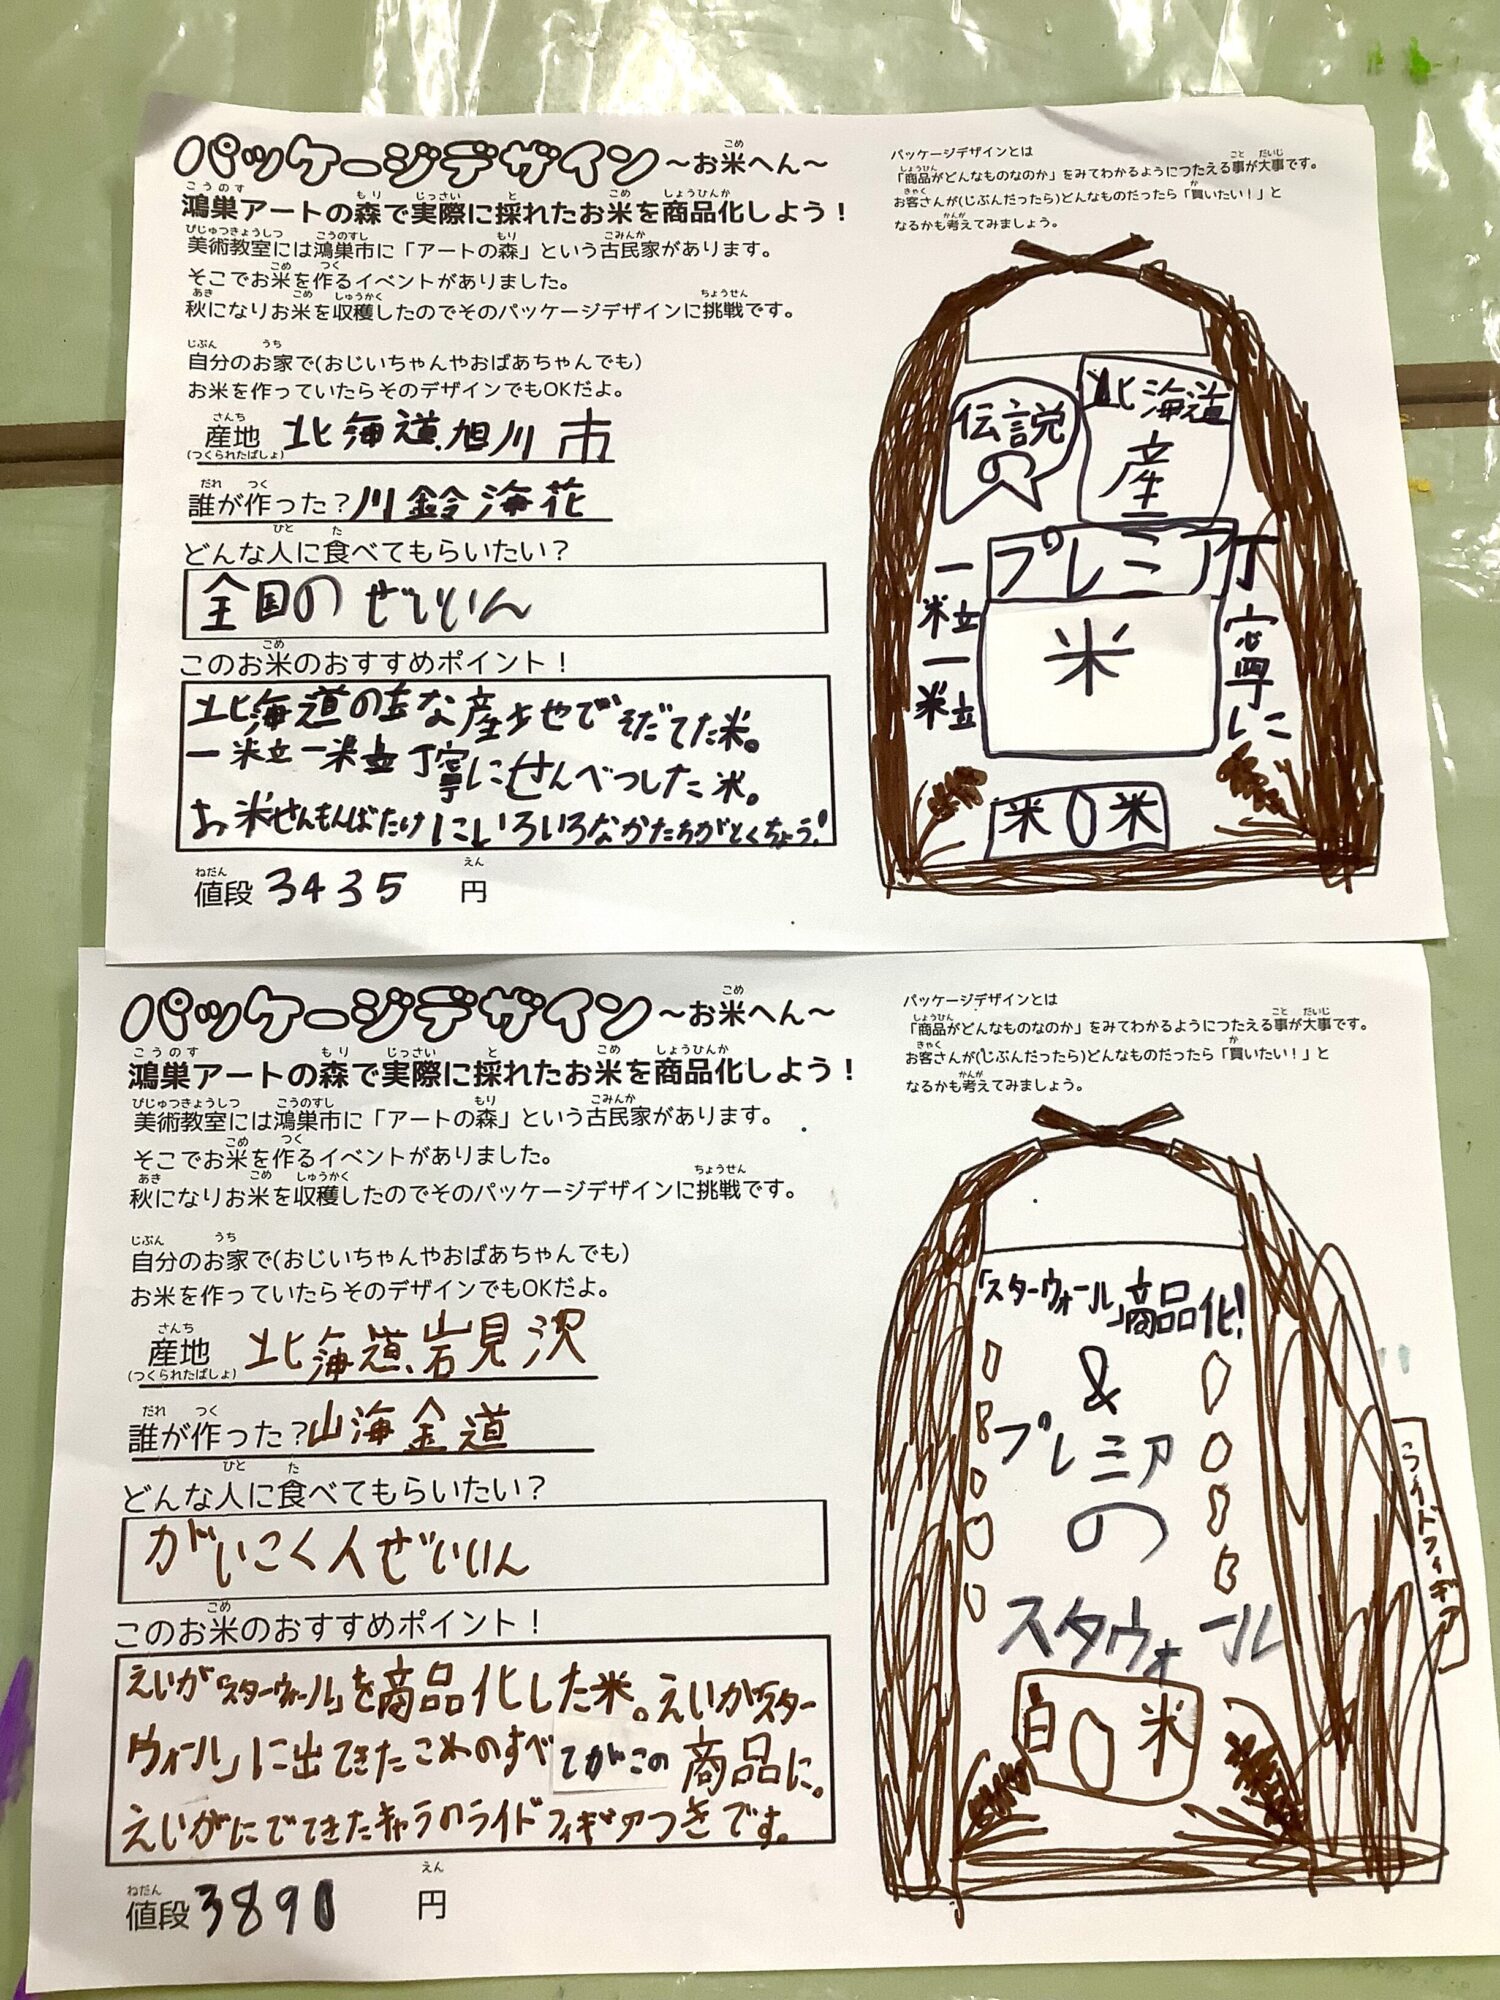 パッケージデザイン〜お米へん〜
鴻巣アートの森で実際に採れたお米を商品化しよう！
美術教室には鴻巣市に「アートの森」という古民家があります。
そこでお米を作るイベントがありました。
秋になりお米を収穫したのでそのパッケージデザインに挑戦です。
自分のお家で(おじいちゃんやおばあちゃんでも)
お米を作っていたらそのデザインでもOKだよ。
産地 北海道、旭川市
(つくられたばしょ)
誰が作った？川鈴海花
どんな人に食べてもらいたい？
全国のぜいいん
このお米のおすすめポイント！
北海道の 産地でそだてた米。
一粒一粒丁寧にせんべつした米。
お米せんもんばたけにいろいろなかたちがとくちょう！
値段 3435 円
パッケージデザインとは
「商品がどんなものなのか」をみてわかるようにつたえる事が大事です。
お客さんが(じぶんだったら)どんなものだったら「買いたい！」と
なるかも考えてみましょう。
伝説の
北海道産
プレミア
米
一粒一粒
丁寧に
米0米
パッケージデザイン〜お米へん〜
鴻巣アートの森で実際に採れたお米を商品化しよう！
美術教室には鴻巣市に「アートの森」という古民家があります。
そこでお米を作るイベントがありました。
秋になりお米を収穫したのでそのパッケージデザインに挑戦です。
自分のお家で(おじいちゃんやおばあちゃんでも)
お米を作っていたらそのデザインでもOKだよ。
産地 北海道、岩見沢
(つくられたばしょ)
誰が作った？山海金道
どんな人に食べてもらいたい？
がいこく人ぜいいん
このお米のおすすめポイント！
えいが「スターウォール」を商品化した米。えいが「スター
ウォール」に出てきたこめのすべてがこの商品に。
えいがにでてきたキャラのライドフィギアつきです。
値段 3890 円
パッケージデザインとは
「商品がどんなものなのか」をみてわかるようにつたえる事が大事です。
お客さんが(じぶんだったら)どんなものだったら「買いたい！」と
なるかも考えてみましょう。
「スターウォール」商品化！
&
プレミア
の
スタウォール
白0米
ライドフィギア